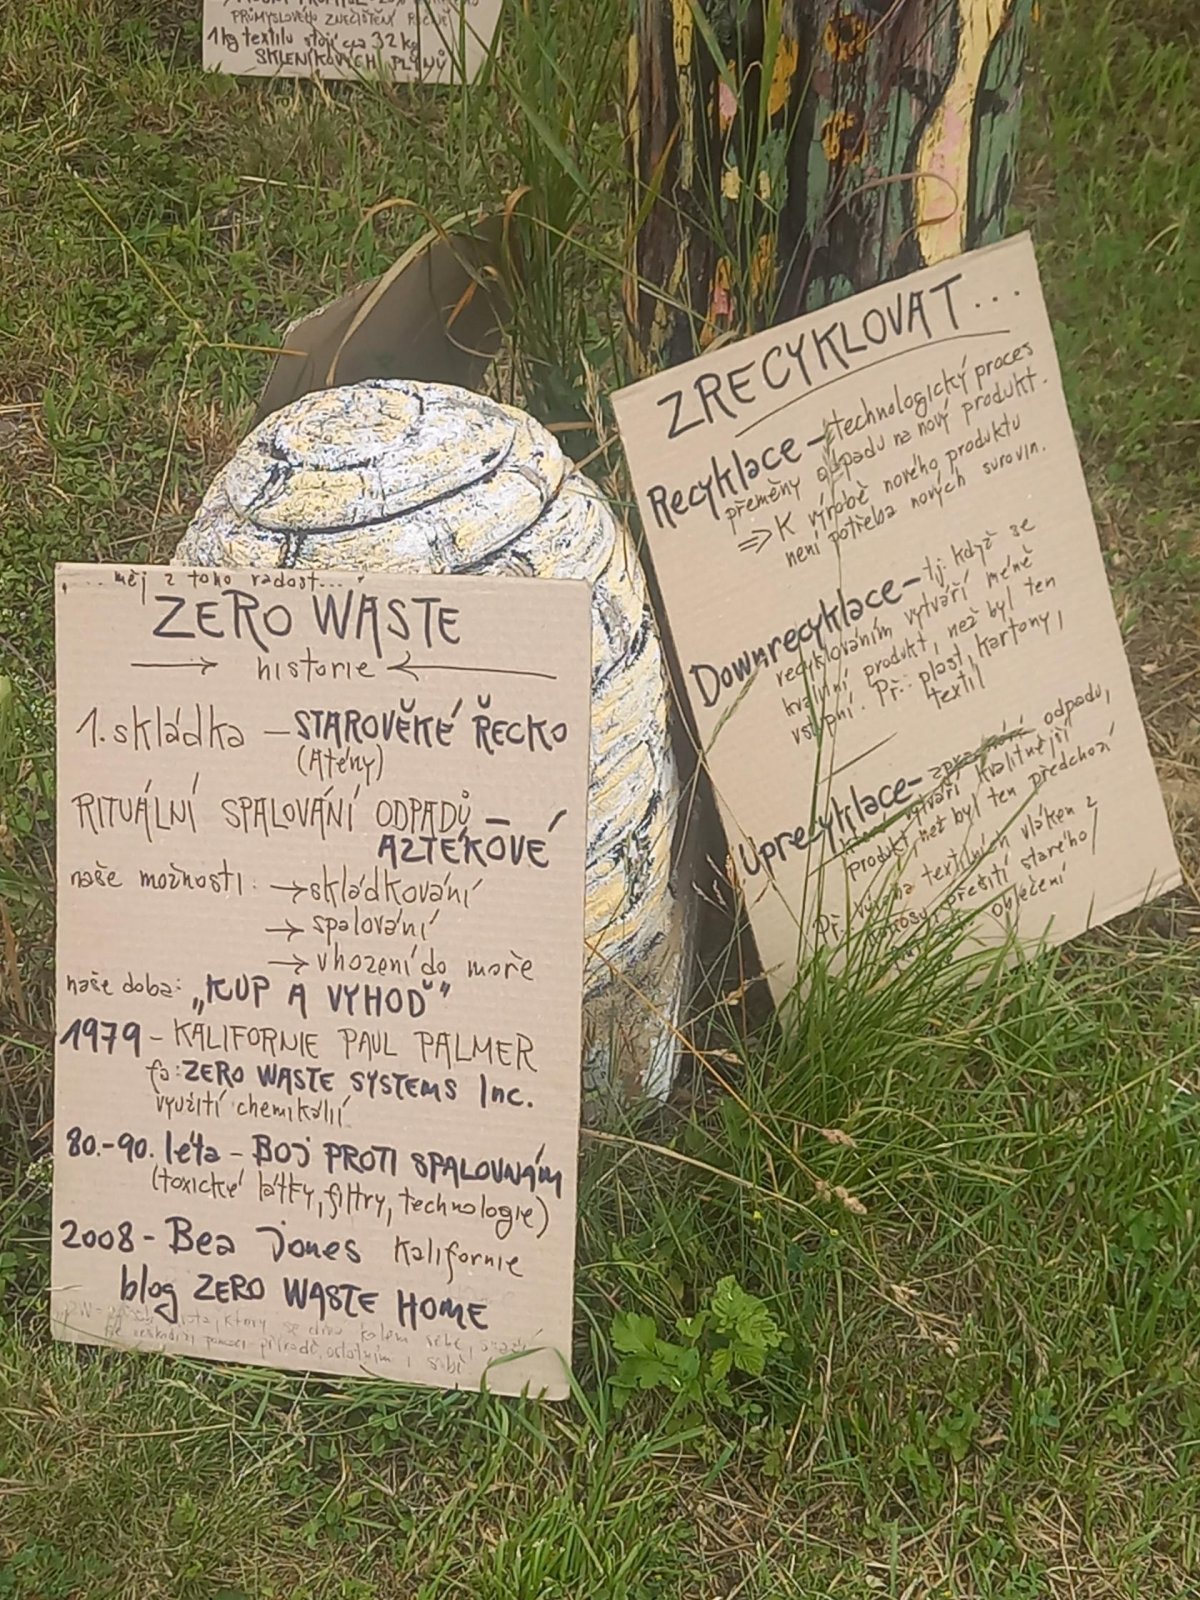 PRŮMYSLOVÉHO ZNEČIŠTĚNÍ ROČNĚ
1kg textilu stojí cca 32 kg
SKLENÍKOVÝCH PLYNŮ
ZRECYKLOVAT...
Recyklace - technologický proces
přeměny odpadu na nový produkt.
=> K výrobě nového produktu
není potřeba nových surovin.
Downrecyklace - tj. když se
recyklováním vytváří méně
kvalitní produkt, než byl ten
vstupní. Př.: plast, kartony,
textil
Uprecyklace - odpadu,
vytváří kvalitnější
produkt než byl ten předchozí
Př.: výroba textilních vláken z
přešití starého
oblečení
... měj z toho radost...
ZERO WASTE
historie
1. skládka - STAROVĚKÉ ŘECKO
(Atény)
RITUÁLNÍ SPALOVÁNÍ ODPADŮ -
AZTÉKOVÉ
naše možnosti: → skládkování
→ spalování
→ vhození do moře
naše doba: „KUP A VYHOĎ"
1979 - KALIFORNIE PAUL PALMER
fa: ZERO WASTE SYSTEMS Inc.
využití chemikálií
80.-90. léta - BOJ PROTI SPALOVNÁM
(toxické látky, filtry, technologie)
2008 - Bea Jones Kalifornie
blog ZERO WASTE HOME
kolem sebe,
přírodě, ostatním i sobě